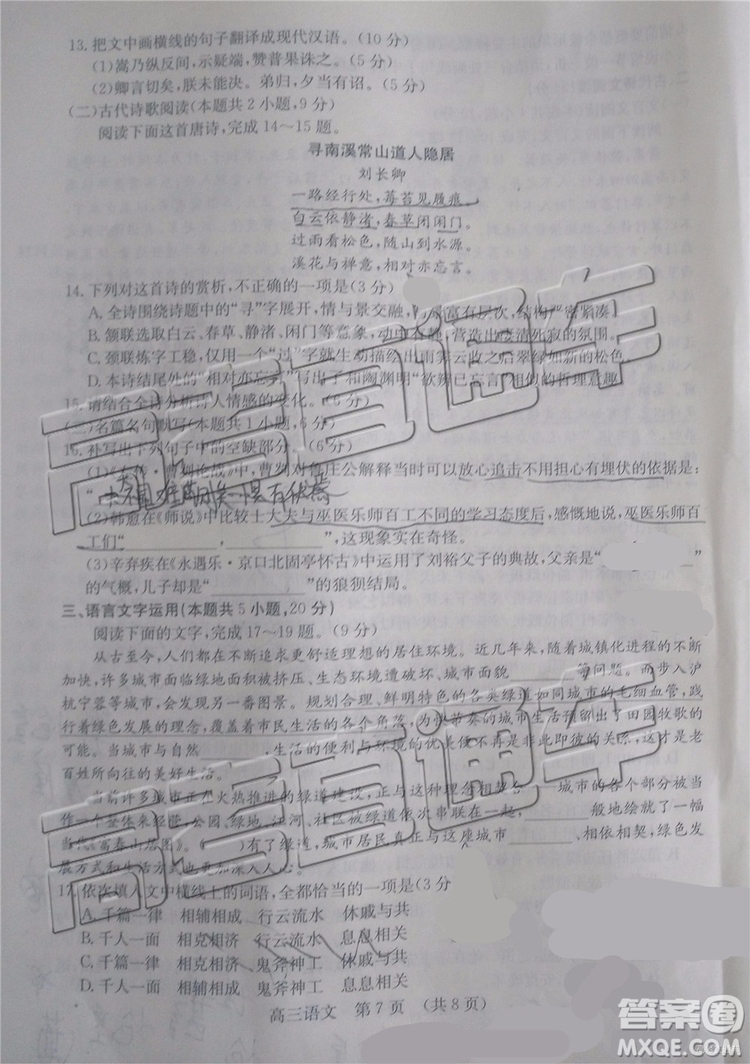 13.把文中画横线的句子翻译成现代汉语。(10分)
(1)嵩乃纵反间,示疑端,赞普果诛之。(5分)
(2)卿言切矣,朕未能决。弟归,夕当有诏。(5分)
(二)古代诗歌阅读(本题共2小题,9分)
阅读下面这首唐诗,完成14~15题。
寻南溪常山道人隐居
刘长卿
一路经行处,莓苔见屐痕。
白云依静渚,春草闭闲门。
过雨看松色,随山到水源。
溪花与禅意,相对亦忘言。
14.下列对这首诗的赏析,不正确的一项是(3分)
A.全诗围绕诗题中的“寻”字展开,情与景交融,富有层次,结构严密紧凑
B.颔联选取白云、春草、静渚、闲门等意象,动中有静,营造出凄清死寂的氛围。
C.颈联炼字工稳,仅用一个“过”字就生动描绘出雨霁云收之后翠绿如新的松色
D.本诗结尾处的“相对亦忘言”写出了和陶渊明“欲辨已忘言”相似的哲理意趣
15.请结合全诗分析诗人情感的变化。(6分)
(三)名篇名句默写(本题共1小题,6分)
16.补写出下列句子中的空缺部分。(6分)
(1)《左传·曹刿论战》中,曹刿向鲁庄公解释当时可以放心追击不用担心有埋伏的依据是:
“
(2)韩愈在《师说》中比较士大夫与巫医乐师百工不同的学习态度后,感慨地说,巫医乐师百
工们“ , ”,这现象实在奇怪。
(3)辛弃疾在《永遇乐·京口北固亭怀古》中运用了刘裕父子的典故,父亲是“
的气概,儿子却是“ ”的狼狈结局。
三、语言文字运用(本题共5小题,20分)
阅读下面的文字,完成17~19题。(9分)
从古至今,人们都在不断追求更舒适理想的居住环境。近几年来,随着城镇化进程的不断
加快,许多城市面临绿地面积挤压、生态环境遭受破坏、城市面貌 等问题。而步入沪
杭宁蓉等城市,或会发现另一番图景。规划合理、鲜明特色的各类绿道如同城市的毛细血管,践
行着绿色发展的理念,覆盖着市民生活的各个角落,为快节奏的城市生活预留出了田园牧歌的
可能。当城市与自然 ,生活的便利与环境的美好不再是非此即彼的关系,这才是老
百姓所向往的美好生活。
当前许多城市正在火热推进的绿道建设,就像是 城市的各个部分被当
作一个整体来经营,田园、绿地、江河、社区被绿道依次串联在一起, 般地绘就了一幅
当代《富春山居图》。( )有了绿道,城市居民真正与这座城市 、相依相契,绿色发
展方式和生活方式也
17.依次填入文中横线上的词语,全都恰当的一项是(3分
A.千篇一律 相辅相成 行云流水 休戚与共
B.千人一面 相克相济 行云流水 息息相关
C.千篇一律 相克相济 鬼斧神工 休戚与共
D.千人一面 相辅相成 鬼斧神工 息息相关
高三语文 第7页 (共8页)
高考直通车
高考直通车
答案圈
MXQE.COM